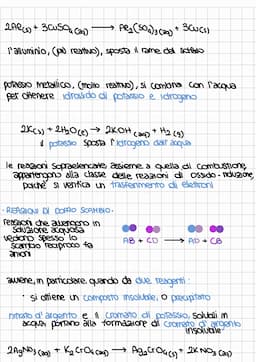 2Al(s) + 3CuSO₄ (aq) → Al₂(SO₄)₃ (aq) + 3Cu(s)
l'alluminio, (più reattivo), sposta il rame del solfato
potassio metallico, (molto reattivo), si combina con l'acqua
per ottenere idrossido di potassio e idrogeno
2K(s) + 2H₂O(l) → 2KOH (aq) + H₂ (g)
il potassio sposta l'idrogeno dall'acqua
le reazioni sopraelencate assieme a quella di combustione,
appartengono alla classe delle reazioni di ossido-riduzione,
poiché si verifica un trasferimento di elettroni
• REAZIONI DI DOPPIO SCAMBIO •
reazioni che avvengono in
soluzione acquosa
vedono spesso lo
scambio reciproco fra
anioni
AB + CD → AD + CB
avviene, in particolare, quando da due reagenti:
• si ottiene un composto insolubile, o precipitato
nitrato d'argento e il cromato di potassio, solubili in
acqua portano alla formazione di cromato d'argento
insolubile
2AgNO₃ (aq) + K₂CrO₄ (aq) → Ag₂CrO₄ (s) + 2KNO₃ (aq)